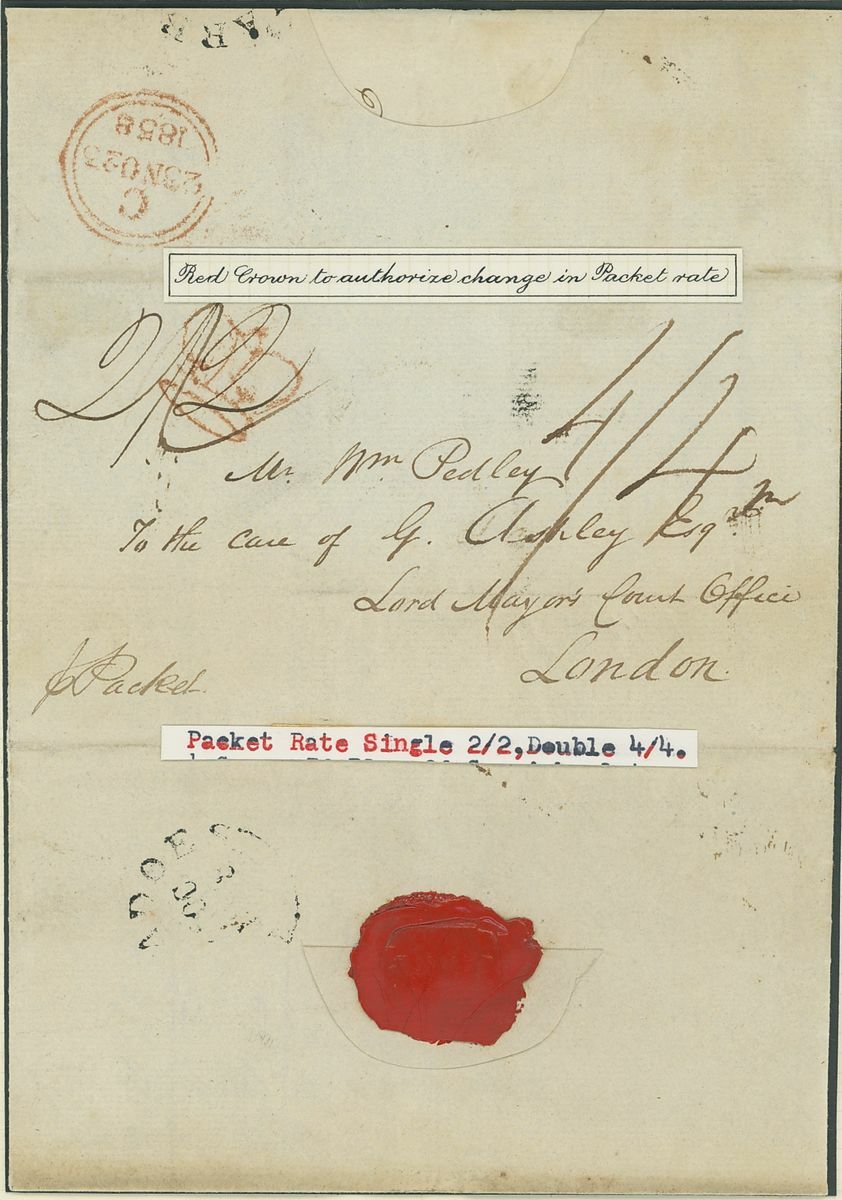 C
23NO23
1838
Red Crown to authorize change in Packet rate
2/2
4/4
Mr. Wm Pedley
To the care of G. Ashley Esqr.
Lord Mayor's Court Office
London.
p Packet.
Packet Rate Single 2/2, Double 4/4.
ADOES